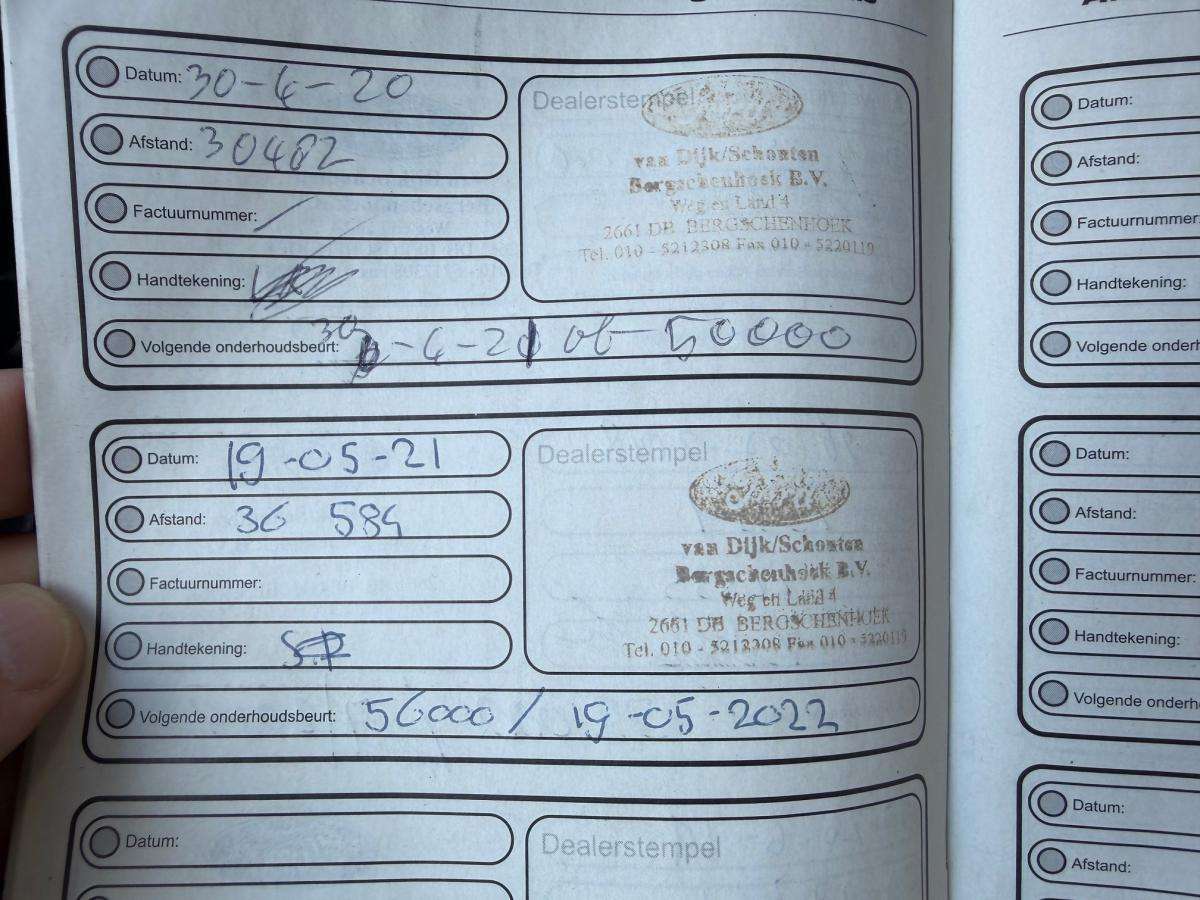 Datum: 30-4-20
Afstand: 30482
Factuurnummer: /
Handtekening:
Volgende onderhoudsbeurt: 30-4-21 of 50000
Dealerstempel
van Dijk/Schouten
Bergschenhoek B.V.
Weg en Land 4
2661 DB BERGSCHENHOEK
Tel. 010 - 5212308 Fax 010 - 5220119
Datum: 19-05-21
Afstand: 36 584
Factuurnummer:
Handtekening:
Volgende onderhoudsbeurt: 56000 / 19-05-2022
Dealerstempel
van Dijk/Schouten
Bergschenhoek B.V.
Weg en Land 4
2661 DB BERGSCHENHOEK
Tel. 010 - 5212308 Fax 010 - 5220119
Datum:
Dealerstempel
Datum:
Afstand:
Factuurnummer:
Handtekening:
Volgende onderh
Datum:
Afstand:
Factuurnummer:
Handtekening:
Volgende onderh
Datum:
Afstand: